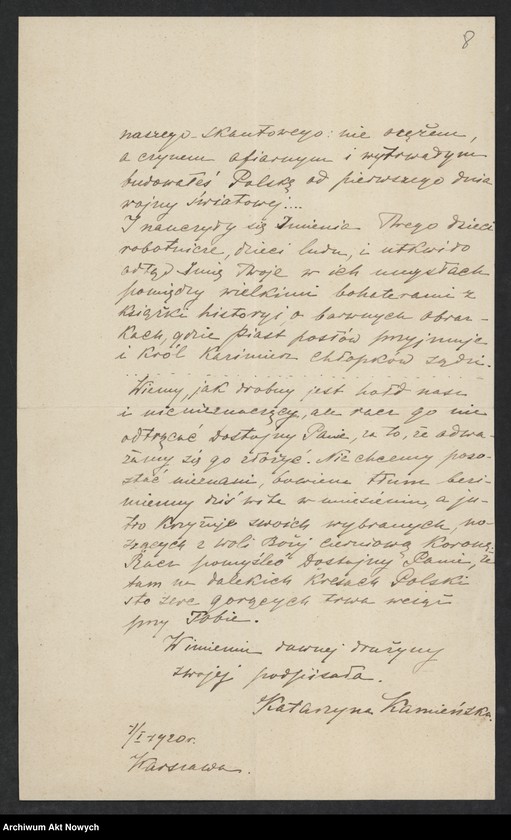 8
naszego skautowego: nie orężem,
a czynem ofiarnym i wytrwałym
budowałeś Polskę od pierwszego dnia
wojny światowej....
I nauczyły się Imienia Twego dzieci
robotnicze, dzieci ludu, i utkwiło
odtąd Imię Twoje w ich umysłach
pomiędzy wielkimi bohaterami z
książki historyi, o barwnych obraz-
kach, gdzie Piast posłów przyjmuje
i Król Kazimierz chłopków sądzi.
Wiemy, jak drobny jest hołd nasz
i nic nieznaczący, ale racz go nie
odtrącać Dostojny Panie, za to, że odwa-
żamy się go złożyć. Nie chcemy pozo-
stać nieznani, bowiem tłum bezi-
mienny dziś wita w uniesieniu, a ju-
tro krzyżuje swoich wybranych, no-
szących z woli Bożej cierniową Koronę.
Racz pomyśleć Dostojny Panie, że
tam na dalekich Kresach Polski
sto serc gorących trwa wciąż
przy Tobie.
W imieniu dawnej drużyny
swojej podpisała.
Katarzyna Kamieńska.
7/I 1920 r.
Warszawa.
Archiwum Akt Nowych